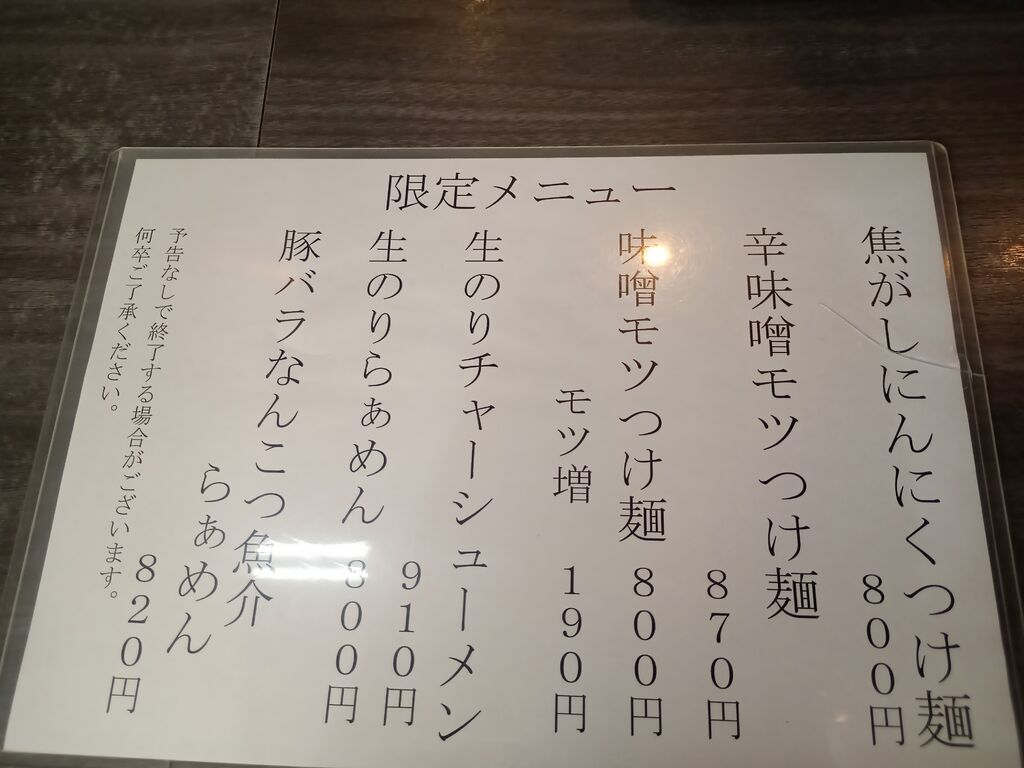 限定メニュー
焦がしにんにくつけ麺
800円
辛味噌モツつけ麺
870円
味噌モツつけ麺
800円
モツ増 190円
生のりチャーシューメン
910円
生のりらぁめん
800円
豚バラなんこつ魚介
らぁめん
820円
予告なしで終了する場合がございます。
何卒ご了承ください。